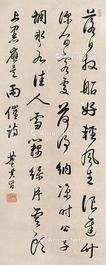 落日放船好輕風生浪遲竹
深留客處荷淨納涼時公子
調冰水佳人雪藕絲片雲頭
上黑應是雨催詩